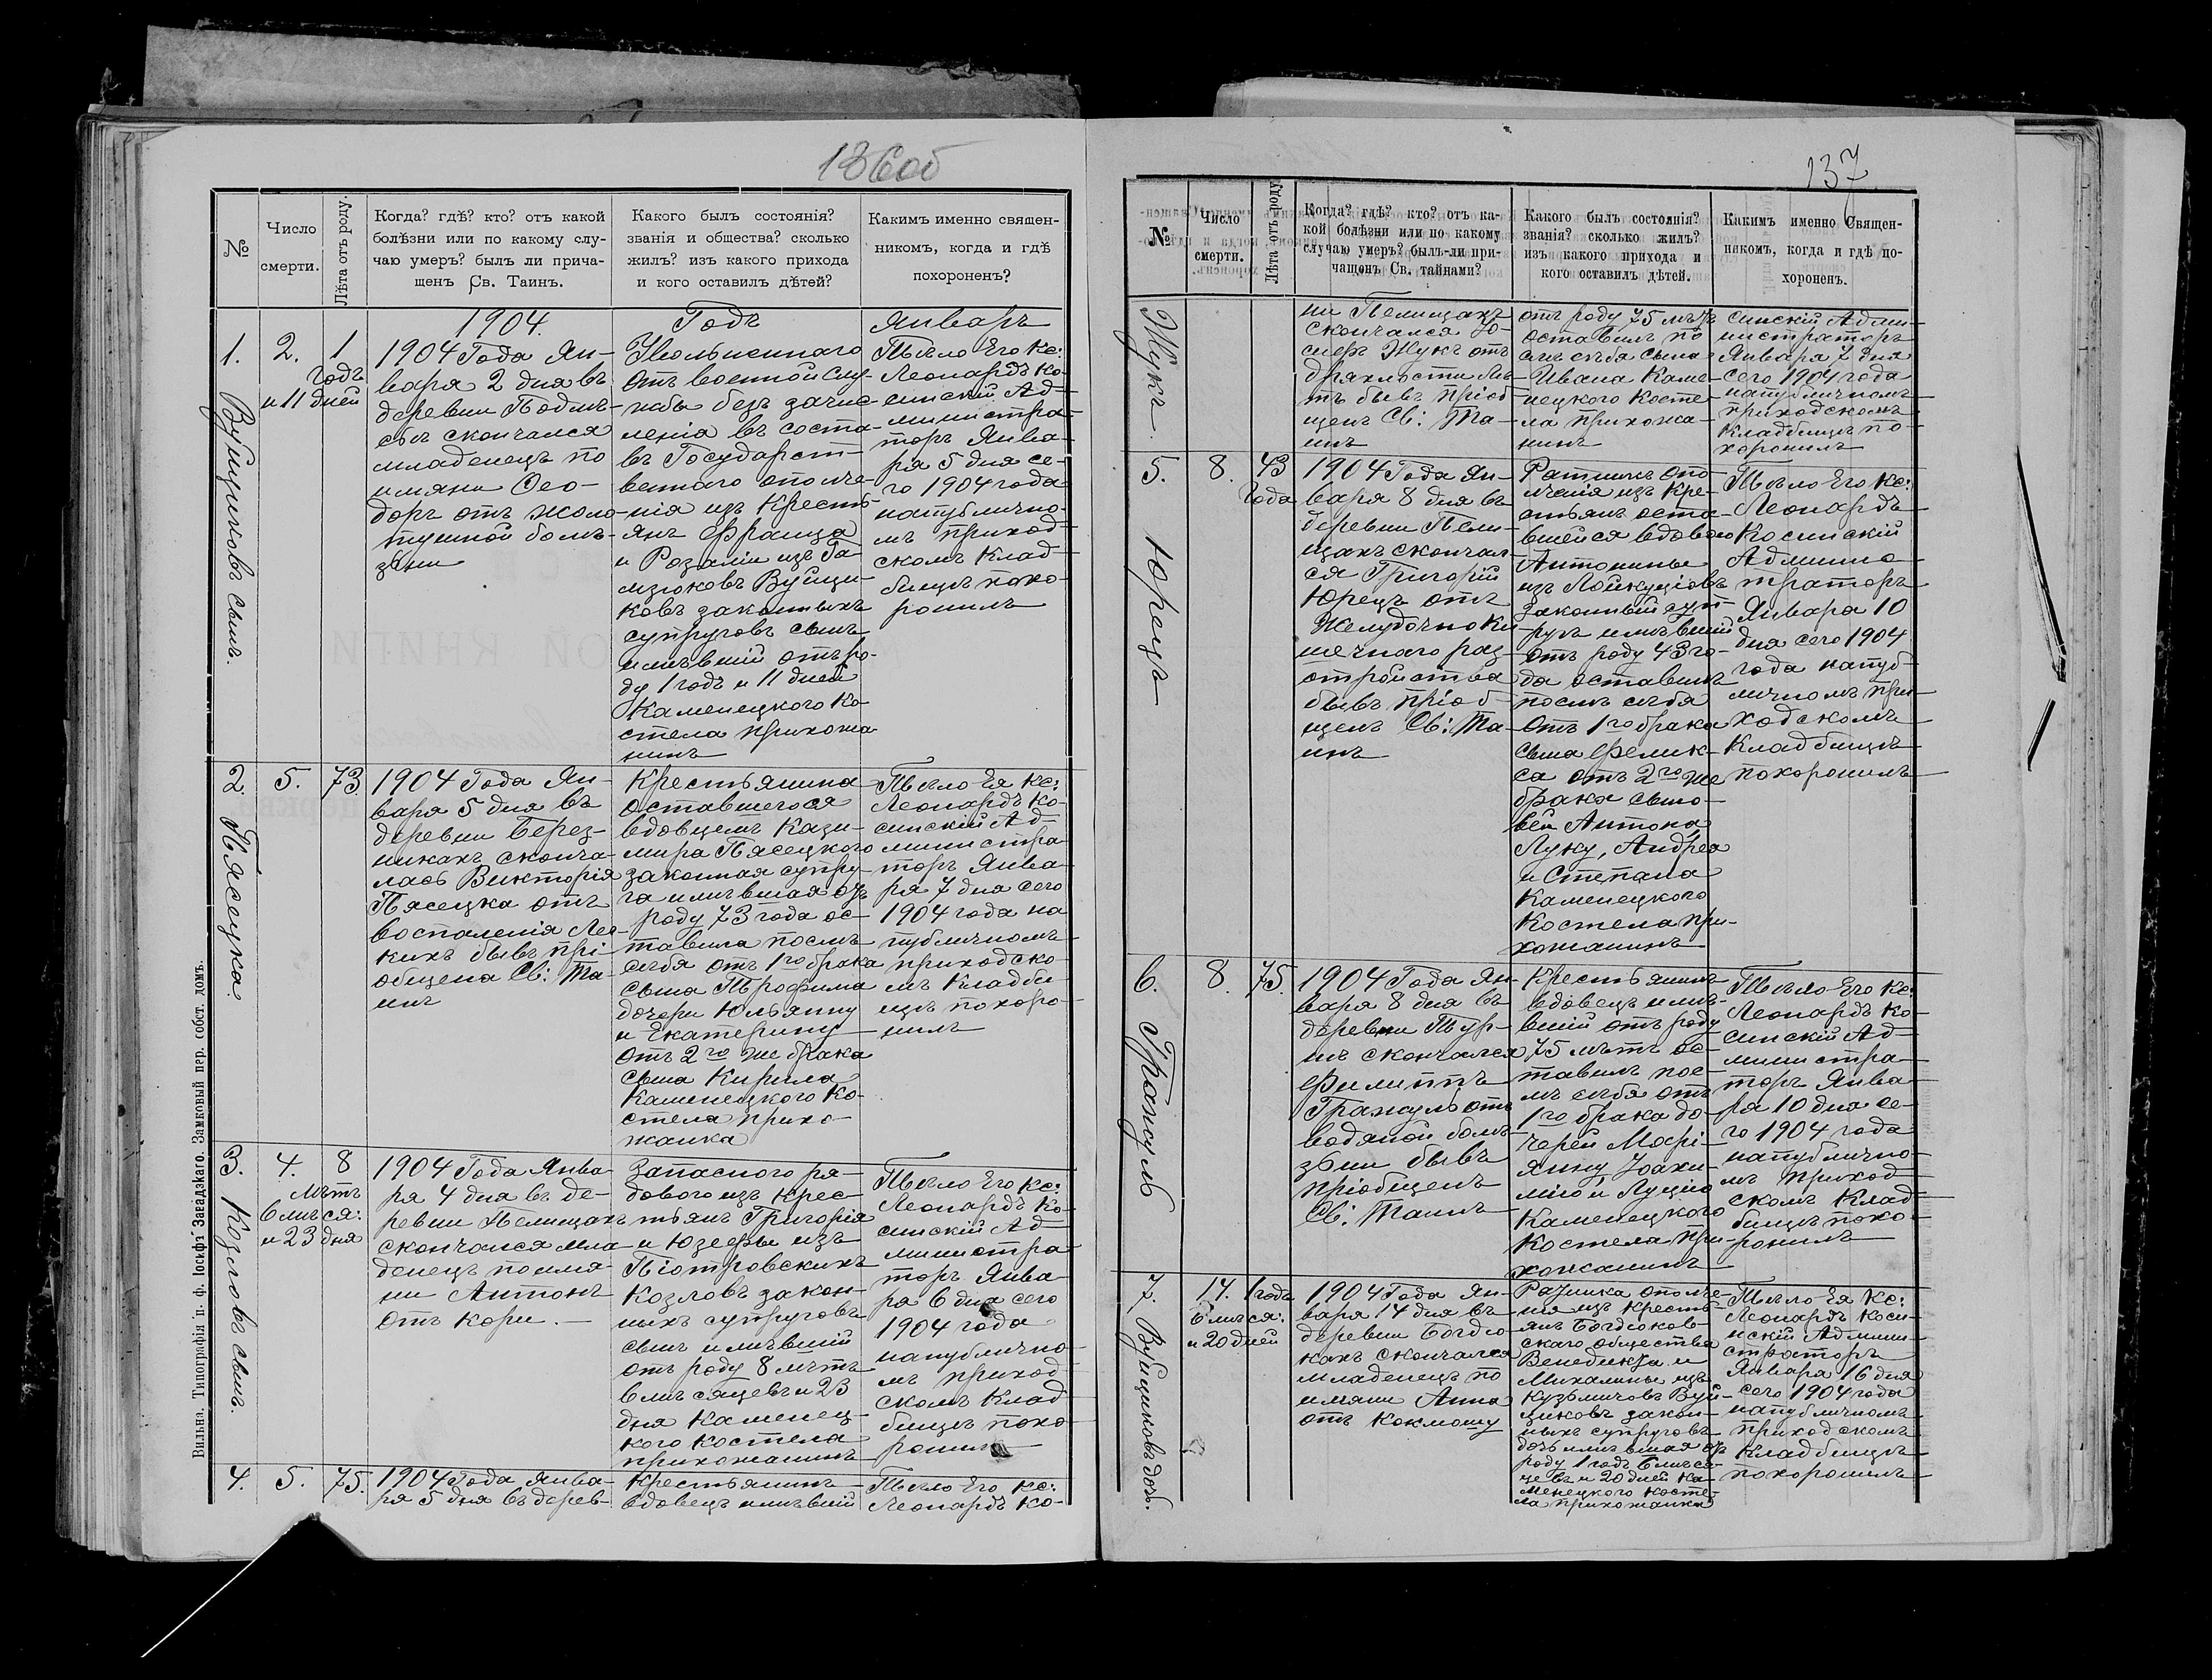 136об
№
Число
смерти.
Лѣта отъ роду.
Когда? гдѣ? кто? отъ какой
болѣзни или по какому слу-
чаю умеръ? былъ ли прича-
щенъ Св. Таинъ.
Какого былъ состоянія?
званія и общества? сколько
жилъ? изъ какого прихода
и кого оставилъ дѣтей?
Какимъ именно священ-
никомъ, когда и гдѣ
похороненъ?
1904.
Годъ
Январь
1.
Вуйциковъ сынъ.
2.
1
годъ
и 11 дней
1904 Года Ян-
варя 2 дня въ
деревни Подлѣ-
сьѣ скончался
младенецъ по
имяни Ѳео-
доръ отъ желу-
тушной болѣ-
зни
Увольненнаго
отъ военной слу-
жбы безъ зачис-
ленія въ соста-
въ Государст-
веннаго ополче-
нія изъ Кресть-
янъ Франца
и Розаліи изъ
Вуйци-
ковъ законныхъ
супруговъ сынъ
имѣвшій отъ ро-
ду 1 годъ и 11 дней
Каменецкого Ко-
стела прихожа
нинъ
Тѣло Его Кс:
Леонардъ Ко-
синскій Ад-
министра-
торъ Янва-
ря 5 дня се-
го 1904 года
на публично-
мъ приход-
скомъ Клад-
бищѣ похо-
ронилъ
2.
Пясецка.
5.
73.
1904 Года Ян-
варя 5 дня въ
деревни Берез-
никахъ сконча-
лась Викторія
Пясецка отъ
воспаленія Лег-
кихъ бывъ прі-
общена Св: Та-
инъ
Крестьянина
оставшегося
вдовцемъ Кази-
мира Пясецкого
законная супру-
га имѣвшая отъ
роду 73 года ос-
тавила послѣ
себя отъ 1го брака
сына Трофима
дочери Юльянну
и Екатерину
отъ 2го же брака
сына Кирила
Каменецкого Ко-
стела прихо-
жанка
Тѣло Ея Кс:
Леонардъ Ко-
синскій Ад-
министра
торъ Янва-
ря 7 дня сего
1904 года на
публичномъ
приходско-
мъ Кладби-
щѣ похоро-
нилъ
3.
Козловъ сынъ.
4.
8
лѣтъ
6 мѣся:
и 23 дня
1904 Года Янва-
ря 4 дня въ де-
ревни Пелищахъ
скончался мла-
денецъ по имя-
ни Антонъ
отъ Кори.
Запасного ря-
дового изъ Крес-
тьянъ Григорія
и Юзефы изъ
Піотровскихъ
Козловъ закон-
ныхъ супруговъ
сынъ имѣвшій
отъ роду 8 лѣтъ
6 мѣсяцевъ и 23
дня Каменец-
кого Костела
прихожанинъ
Тѣло Его Кс:
Леонардъ Ко-
синскій Ад-
министра
торъ Янва-
ря 6 дня сего
1904 года
на публично-
мъ приход-
скомъ Клад-
бищѣ похо-
ронилъ
4.
5.
75.
1904 Года Янва-
ря 5 дня въ дерев-
Крестьянинъ
вдовецъ имѣвшій
Тѣло Его Кс:
Леонардъ Ко-
Вильна. Типографія п. ф. Іосифъ Завадзкаго. Замковый пер. собст. домъ.
137
№
Число
смерти.
Лѣта отъ роду
Когда? гдѣ? кто? отъ ка-
кой болѣзни или по какому
случаю умеръ? былъ-ли при-
чащенъ Св. тайнами?
Какого былъ состоянія?
званія? сколько жилъ?
изъ какого прихода и
кого оставилъ дѣтей.
Какимъ именно Священ-
никомъ, когда и гдѣ по-
хороненъ.
Жукъ.
ни Пелищахъ
скончался Ю-
сифъ Жукъ отъ
дряхлости лѣ-
тъ бывъ пріоб-
щенъ Св: Та-
инъ
отъ роду 75 лѣтъ
оставилъ по
слѣ себя сына
Ивана Каме-
нецкого Косте-
ла прихожа-
нинъ
синскій Адми-
нистраторъ
Января 7 дня
сего 1904 года
на публичномъ
приходскомъ
Кладбищѣ по-
хоронилъ
5.
Юрецъ
8.
43
года
1904 Года Ян-
варя 8 дня въ
деревни Пели-
щахъ скончал-
ся Григорій
Юрецъ отъ
Желудочно ки-
шечнаго раз-
стройства
бывъ пріоб-
щенъ Св: Та-
инъ
Ратникъ опо-
лченія изъ Кре-
стьянъ оста-
вшейся вдовою
Антонины
изъ
законный суп-
ругъ имѣвшій
отъ роду 43 го-
да оставилъ
послѣ себя
отъ 1го брака
сына Феликс-
са отъ 2го же
брака сыно-
вей Антона,
Луку, Андрея
и Степана
Каменецкого
Костела при-
хожанинъ
Тѣло Его Кс:
Леонардъ
Косинскій
Админис-
траторъ
Января 10
дня сего 1904
года на пуб-
личномъ при-
ходскомъ
Кладбищѣ
похоронилъ
6.
Гражуль
8.
75.
1904 Года Ян-
варя 8 дня въ
деревни Тур-
нѣ скончался
Филиппъ
Гражуль отъ
водяной болѣ-
зни бывъ
пріобщенъ
Св: Таинъ
Крестьянинъ
вдовецъ имѣ-
вшій отъ роду
75 лѣтъ ос-
тавилъ пос-
лѣ себя отъ
1го брака до-
черей Марі-
янну Іоахи-
мію и Луцію
Каменецкого
Костела при-
хожанинъ
Тѣло Его Кс:
Леонардъ Ко-
синскій Ад-
министра-
торъ Янва-
ря 10 дня се-
го 1904 года
на публично-
мъ приход-
скомъ Клад-
бищѣ похо-
ронилъ
7.
Вуйциковъ дочь.
14.
1 годъ
6 мѣся:
и 20 дней
1904 Года Ян-
варя 14 дня въ
деревни Богдю-
кахъ скончалея
младенецъ по
имяни Анна
отъ Коклюшу
Ратника ополче-
нія изъ кресть-
янъ Богдюков-
скаго общества
Венедикта и
Михалины изъ
Кузьмичовъ Вуй-
циковъ закон-
ныхъ супруговъ
дочь имѣвшая отъ
роду 1 годъ 6 мѣся-
цевъ и 20 дней Ка-
менецкого Косте-
ла прихожанка
Тѣло Ея Кс:
Леонардъ Коси-
нскій Админи-
страторъ
Января 16 дня
сего 1904 года
на публичномъ
приходскомъ
Кладбищѣ
похоронилъ